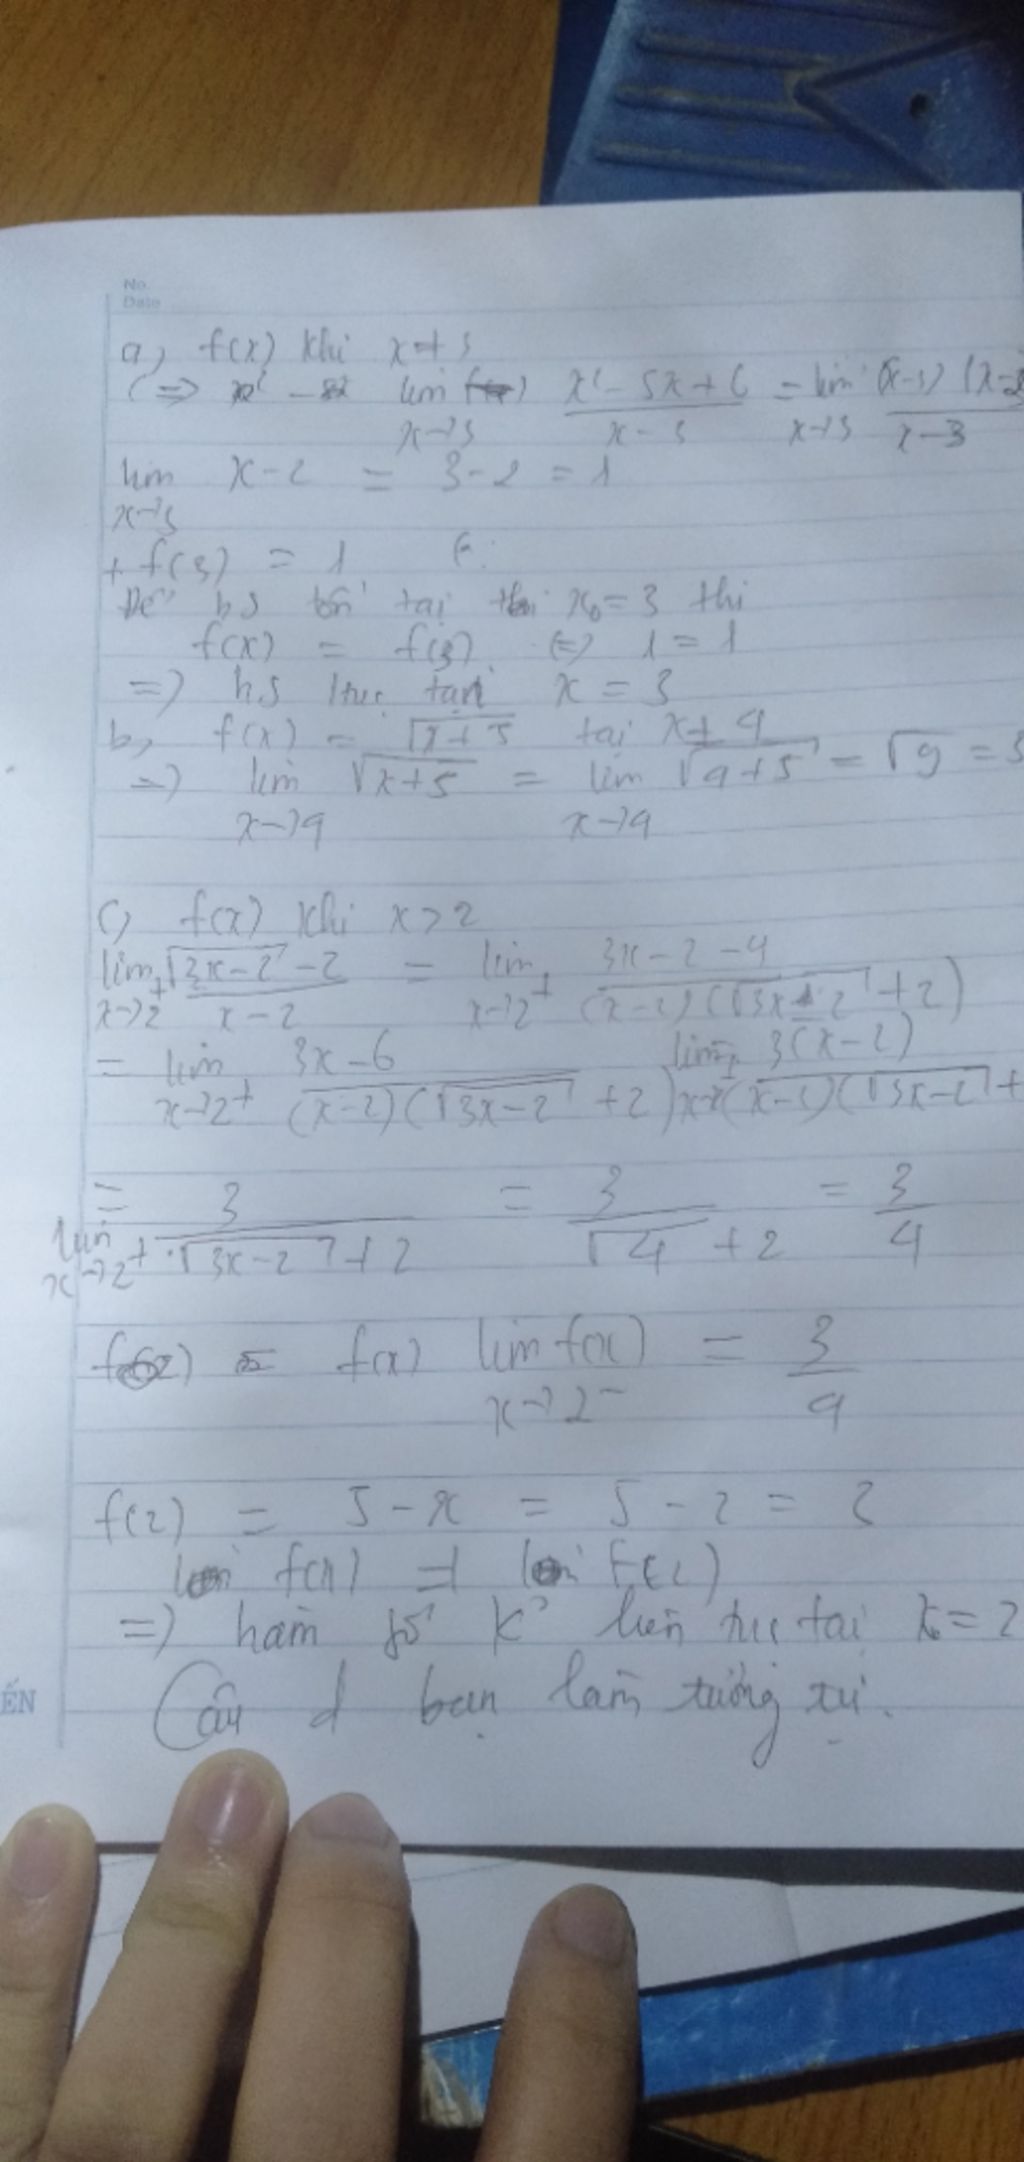 No.
Date
a, f(x) khi x ≠ 3
(=> lim x→3 x² - 5x + 6 / x - 3 = lim x→3 (x-3) (x-2) / x - 3
lim x→3 x - 2 = 3 - 2 = 1
+ f(3) = 1
Để hs tồn tại x₀ = 3 thì
f(x) = f(3) (=) 1 = 1
=) h.s ltục tại x = 3
b, f(x) = √x+5 tại x = 4
=) lim x→4 √x+5 = lim x→4 √4+5 = √9 = 3
c, f(x) khi x > 2
lim x→2⁺ √3x-2 - 2 / x - 2 = lim x→2⁺ 3x - 2 - 4 / (x-2) (√3x-2 + 2)
= lim x→2⁺ 3x - 6 / (x-2) (√3x-2 + 2) lim x→2⁺ 3(x-2) / (x-2) (√3x-2 +
= lim x→2⁺ 3 / √3x-2 + 2 = 3 / √4 + 2 = 3 / 4
f(x) lim f(x) x→2⁻ = 3 / 4
f(2) = 5 - x = 5 - 2 = 3
f(x) ≠ f(2)
=) hàm số k° liên tục tại x₀ = 2
Câu d bạn làm tương tự.
ẾN